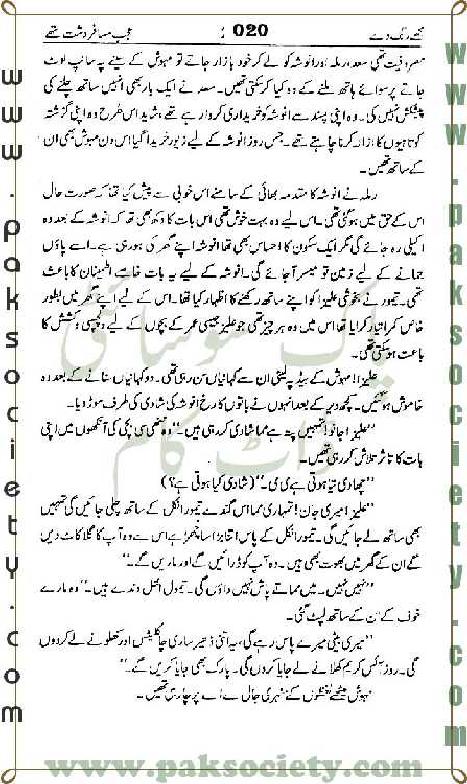 مجھے رنگ دے 020 عجب مسافر دشت تھے
مصروفیت تھی سعد، رملہ اور انوشہ کو لے کر خود بازار جاتے تو مہوش کے سینے پہ سانپ لوٹ
جاتے پر سوائے ہاتھ ملنے کے وہ کیا کر سکتی تھیں۔ سعد نے ایک بار بھی انہیں ساتھ چلنے کی
پیشکش نہیں کی۔ وہ اپنی پسند سے انوشہ کو خریداری کروا رہے تھے، شاید اس طرح وہ اپنی گزشتہ
کوتاہیوں کا ازالہ کرنا چاہتے تھے۔ جس روز انوشہ کے لیے زیور خریدا گیا اس دن مہوش بھی ان
کے ساتھ تھیں۔
رملہ نے انوشہ کا مقدمہ بھائی کے سامنے اس خوبی سے پیش کیا تھا کہ صورت حال
اس کے حق میں ہو گئی تھی۔ اس لیے وہ بہت خوش تھی اس بات کا دکھ بھی تھا کہ انوشہ کے بعد وہ
اکیلی رہ جائے گی مگر ایک سکون کا احساس بھی تھا انوشہ اپنے گھر کی ہو رہی ہے۔ اسے پاؤں
جمانے کے لیے زمین تو میسر آ جائے گی۔ انوشہ کے لیے یہ بات خاصے اطمینان کا باعث
تھی۔ تیمور نے بخوشی علیزا کو اپنے ساتھ رکھنے کا اظہار کیا تھا۔ اس کے لیے اپنے گھر میں بطور
خاص کمرا تیار کرایا تھا اس میں وہ ہر چیز تھی جو علیزا جیسی عمر کے بچوں کے لیے دلچسپی و کشش کا
باعث ہو سکتی تھی۔
علیزا مہوش کے بیڈ پہ لیٹی ان سے کہانیاں سن رہی تھی۔ دو کہانیاں سنانے کے بعد وہ
خاموش ہو گئیں۔ کچھ دیر کے بعد انہوں نے باتوں کا رخ انوشہ کی شادی کی طرف موڑ دیا۔
”علیزا جانو! تمہیں پتہ ہے مما شادی کر رہی ہیں۔“ وہ ننھی سی بچی کی آنکھوں میں اپنی
بات کا تاثر تلاش کر رہی تھیں۔
”چھادی تیا ہوتی ہے می می۔“ (شادی کیا ہوتی ہے؟)
”علیزا میری جان! تمہاری مما اس گندے تیمور انکل کے ساتھ چلی جائیں گی تمہیں
بھی ساتھ لے جائیں گی۔ تیمور انکل کے پاس اتنا بڑا سا چھرا ہے اس سے وہ آپ کا گلا کاٹ دیں
گے ان کے گھر میں بھوت بھی ہیں۔ وہ آپ کو ڈرائیں گے اور ماریں گے۔“
”نہیں نہیں۔ میں مما تے پاش نہیں داؤں گی۔ تیمول انتل دندے ہیں۔“ وہ مارے
خوف کے ان کے ساتھ لپٹ گئی۔
”میری بیٹی میرے پاس رہے گی، میں اتنی ڈھیر ساری چاکلیٹس اور کھلونے لے کر دوں
گی۔ روز آئس کریم کھلانے لے جایا کروں گی۔ پارک بھی جایا کریں گے۔“
مہوش میٹھے لفظوں کے سنہری جال اسے پر تھیں۔
www.paksociety.com
پاک سوسائٹی ڈاٹ کام
www.paksociety.com
www.paksociety.com